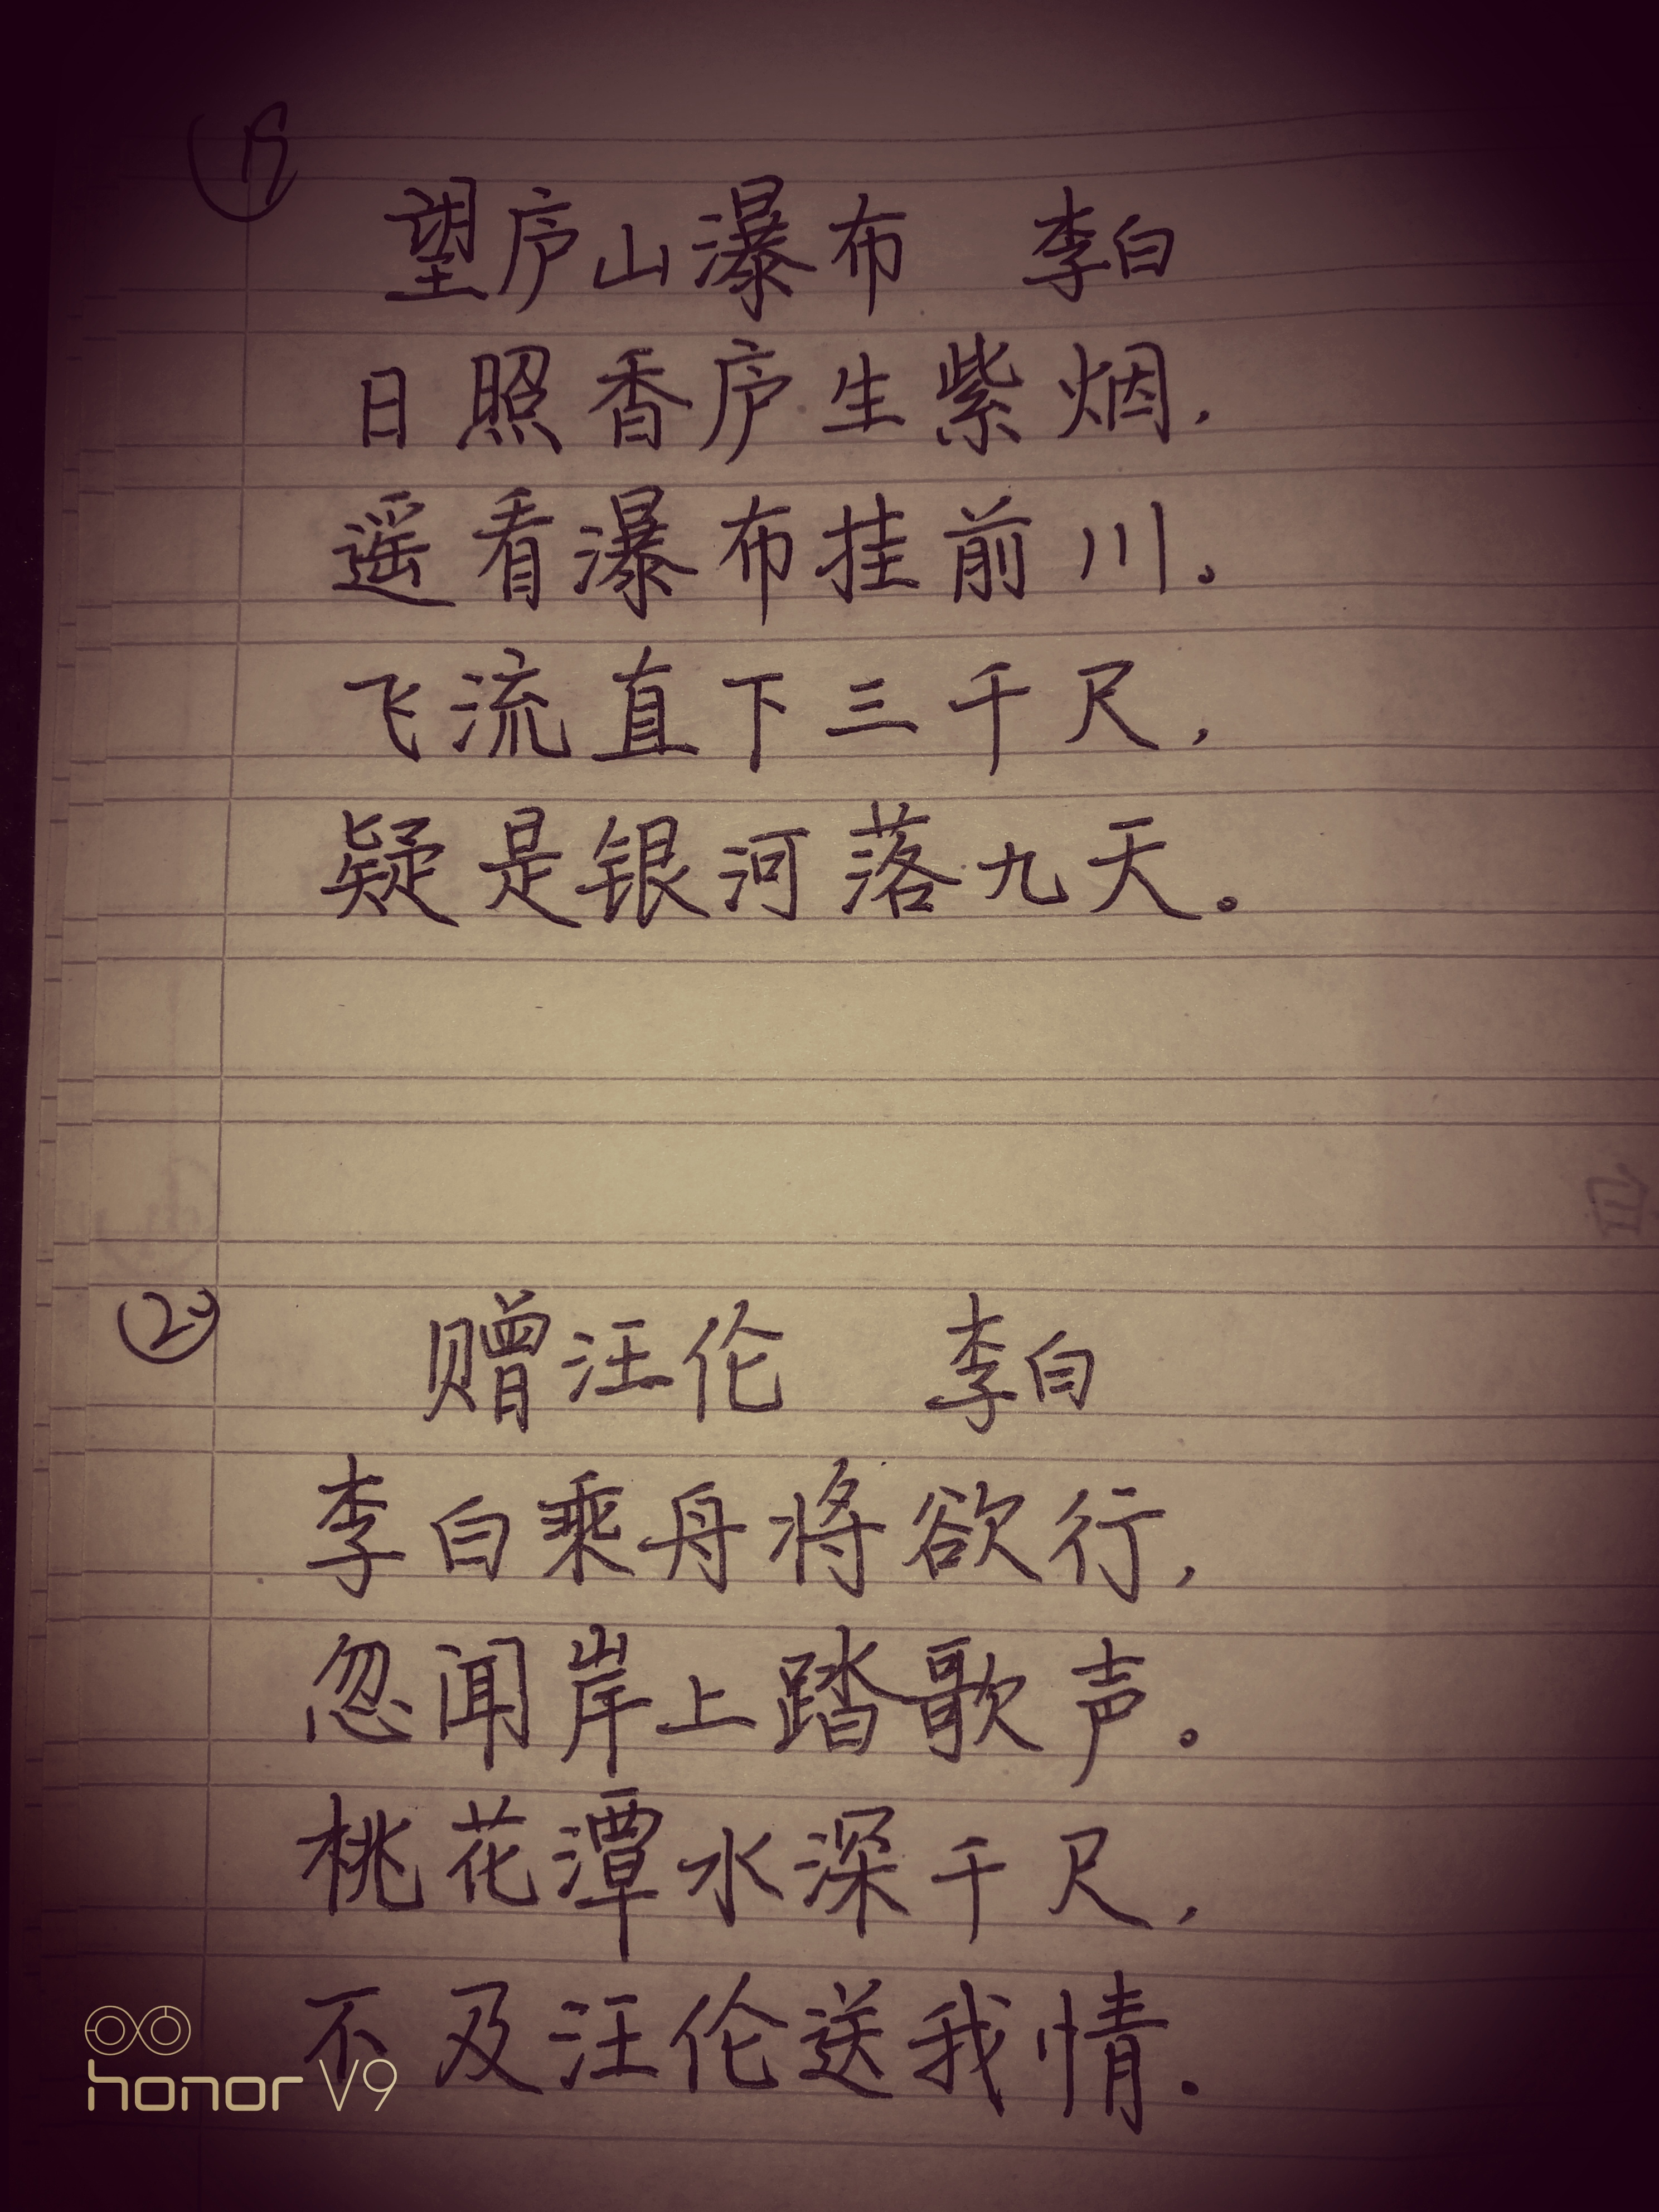 望庐山瀑布 李白
日照香庐生紫烟,
遥看瀑布挂前川。
飞流直下三千尺,
疑是银河落九天。
② 赠汪伦 李白
李白乘舟将欲行,
忽闻岸上踏歌声。
桃花潭水深千尺,
不及汪伦送我情。
honor V9